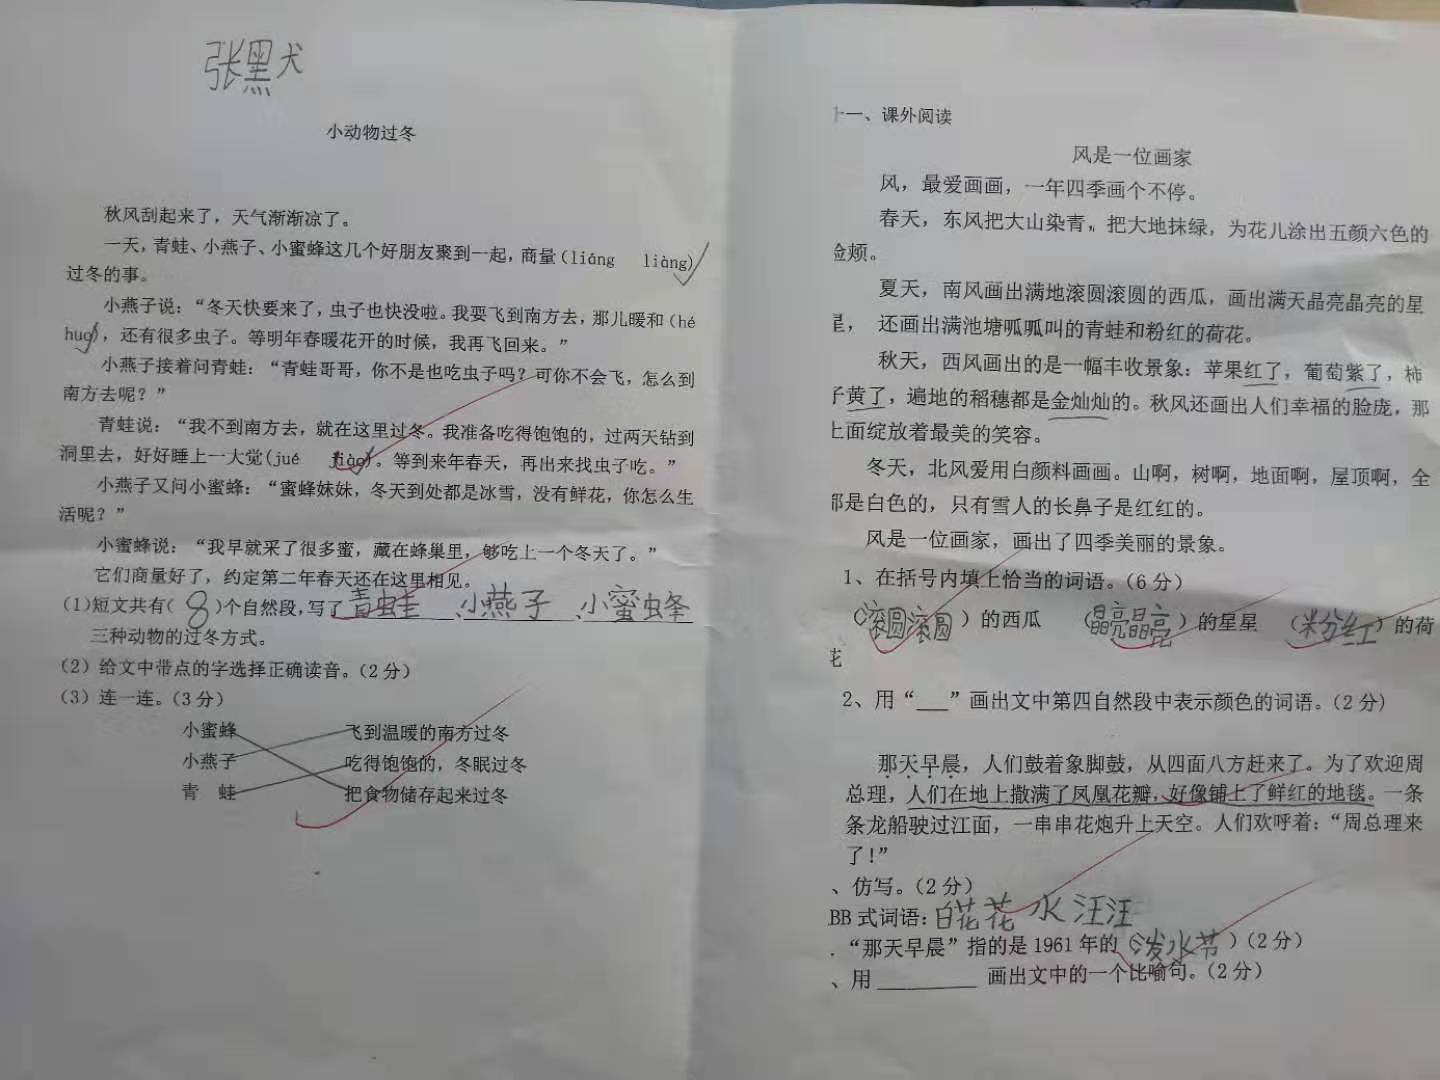 张黑犬
小动物过冬
秋风刮起来了，天气渐渐凉了。
一天，青蛙、小燕子、小蜜蜂这几个好朋友聚到一起，商量（liáng liàng）
过冬的事。
小燕子说：“冬天快要来了，虫子也快没啦。我要飞到南方去，那儿暖和（hé
huo），还有很多虫子。等明年春暖花开的时候，我再飞回来。”
小燕子接着问青蛙：“青蛙哥哥，你不是也吃虫子吗？可你不会飞，怎么到
南方去呢？”
青蛙说：“我不到南方去，就在这里过冬。我准备吃得饱饱的，过两天钻到
洞里去，好好睡上一大觉（jué jiào）。等到来年春天，再出来找虫子吃。”
小燕子又问小蜜蜂：“蜜蜂妹妹，冬天到处都是冰雪，没有鲜花，你怎么生
活呢？”
小蜜蜂说：“我早就采了很多蜜，藏在蜂巢里，够吃上一个冬天了。”
它们商量好了，约定第二年春天还在这里相见。
（1）短文共有（ 8 ）个自然段，写了青蛙、小燕子、小蜜蜂
三种动物的过冬方式。
（2）给文中带点的字选择正确读音。（2分）
（3）连一连。（3分）
小蜜蜂 飞到温暖的南方过冬
小燕子 吃得饱饱的，冬眠过冬
青 蛙 把食物储存起来过冬
十一、课外阅读
风是一位画家
风，最爱画画，一年四季画个不停。
春天，东风把大山染青，把大地抹绿，为花儿涂出五颜六色的
脸颊。
夏天，南风画出满地滚圆滚圆的西瓜，画出满天晶亮晶亮的星
星， 还画出满池塘呱呱叫的青蛙和粉红的荷花。
秋天，西风画出的是一幅丰收景象：苹果红了，葡萄紫了，柿
子黄了，遍地的稻穗都是金灿灿的。秋风还画出人们幸福的脸庞，那
上面绽放着最美的笑容。
冬天，北风爱用白颜料画画。山啊，树啊，地面啊，屋顶啊，全
都是白色的，只有雪人的长鼻子是红红的。
风是一位画家，画出了四季美丽的景象。
1、在括号内填上恰当的词语。（6分）
（滚圆滚圆）的西瓜 （晶亮晶亮）的星星 （粉红）的荷
花
2、用“___”画出文中第四自然段中表示颜色的词语。（2分）
那天早晨，人们鼓着象脚鼓，从四面八方赶来了。为了欢迎周
总理，人们在地上撒满了凤凰花瓣，好像铺上了鲜红的地毯。一条
条龙船驶过江面，一串串花炮升上天空。人们欢呼着：“周总理来
了！”
、仿写。（2分）
BB式词语：白花花 水汪汪
.“那天早晨”指的是1961年的（泼水节）（2分）
、用________ 画出文中的一个比喻句。（2分）